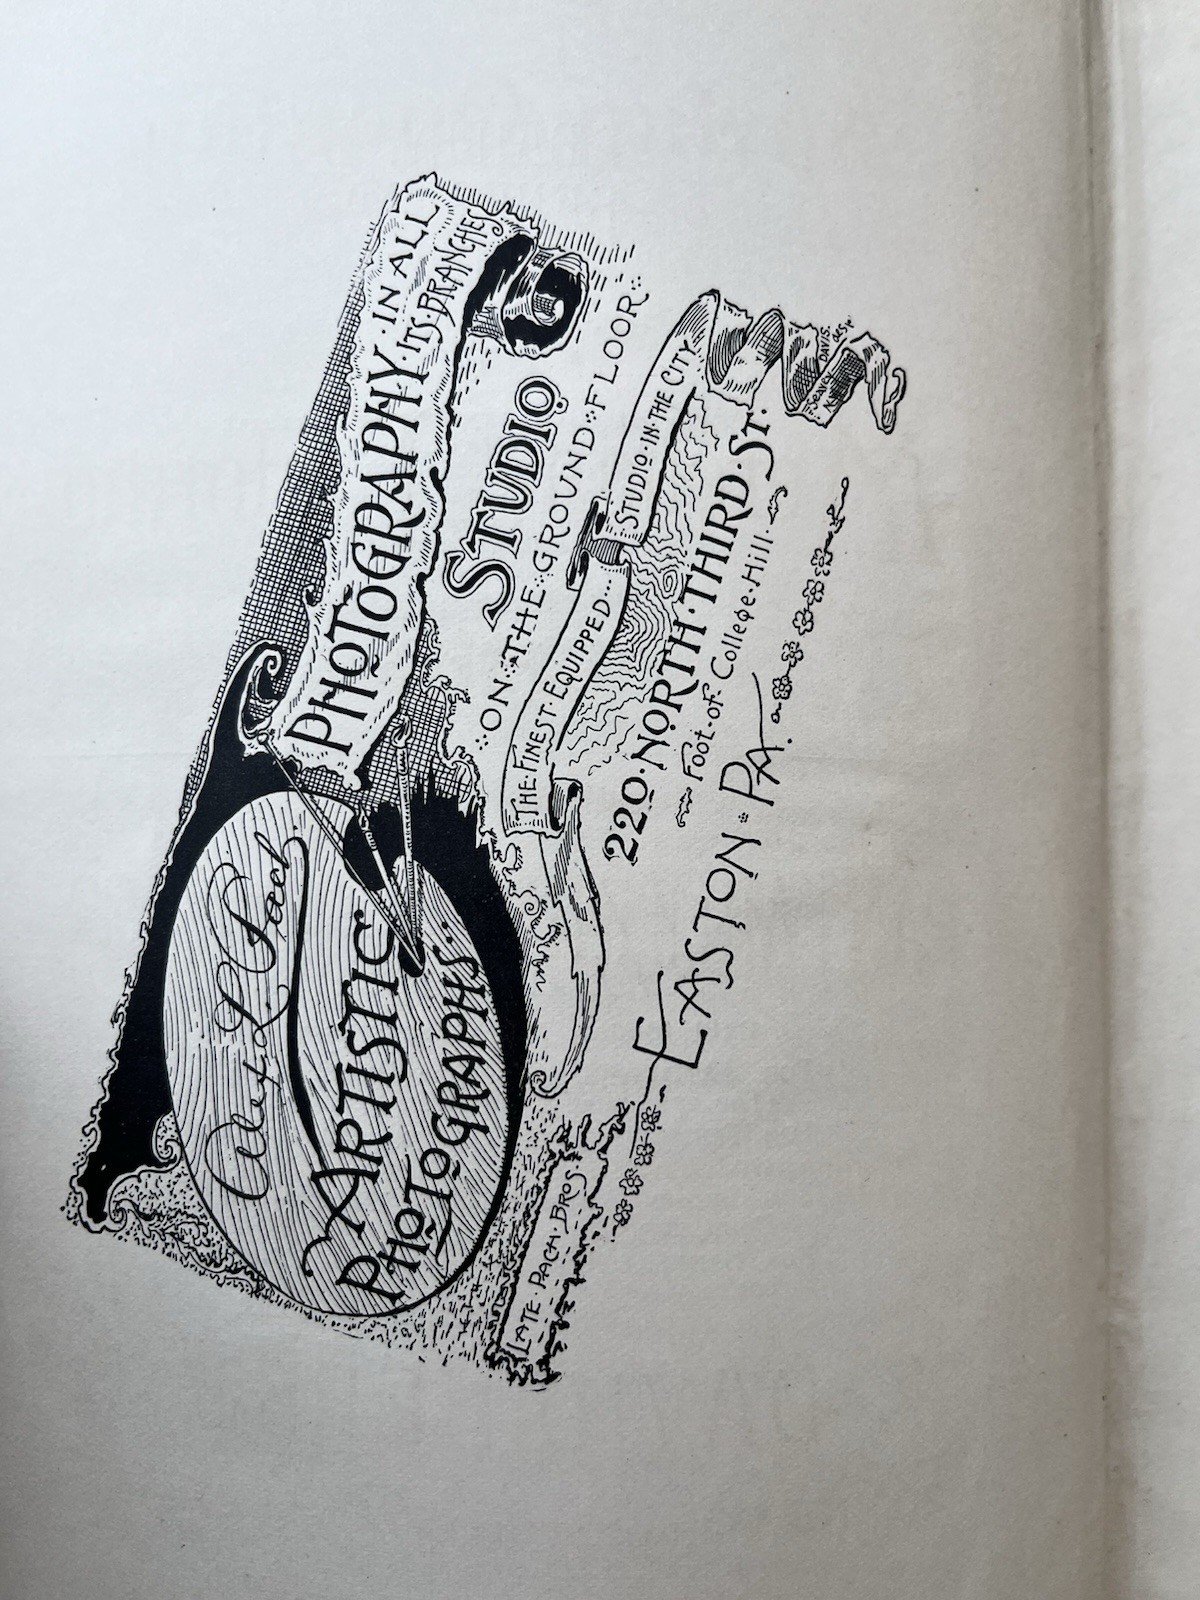 Alex. L. Pach
ARTISTIC
PHOTOGRAPHS
PHOTOGRAPHY·IN ALL
ITS·BRANCHES
STUDIO
ON·THE·GROUND·FLOOR
THE·FINEST·EQUIPPED...
STUDIO·IN·THE·CITY
220·NORTH·THIRD·ST.
Foot·of·College·Hill·
LATE·PACH·BROS
EASTON·PA.
DAVIS.